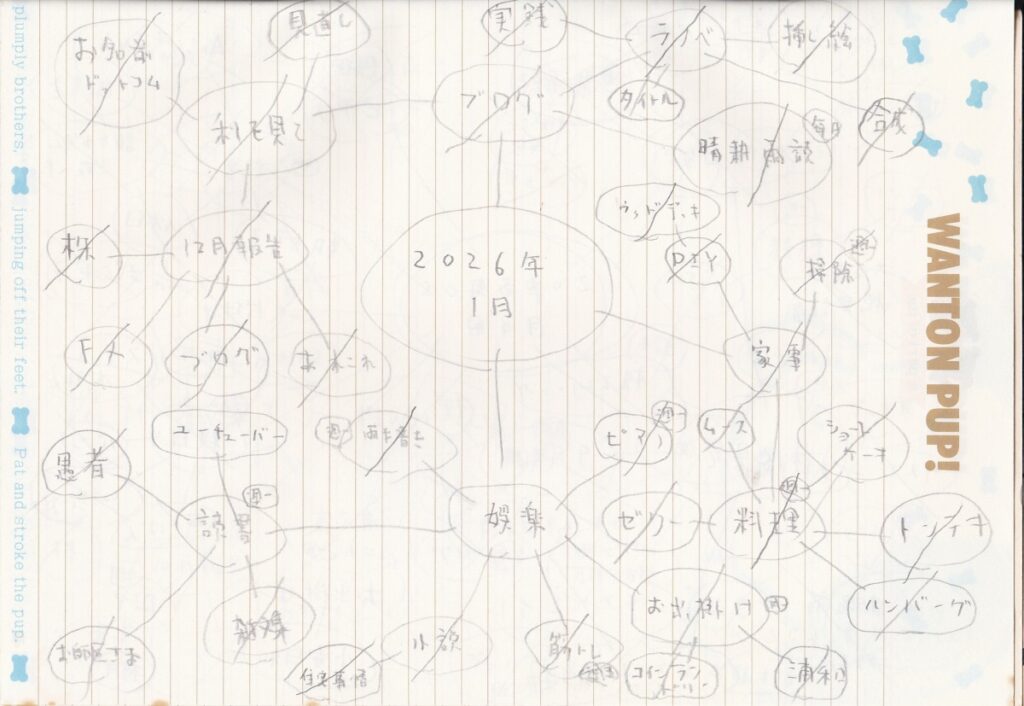 見直し
実践
ラノベ
挿し絵
お名前
ドットコム
ブログ
タイトル
毎日
晴耕雨読
ウッドデッキ
株
12月報告
2026年
1月
DIY
週一
掃除
FX
ブログ
あれこれ
家事
ユーチューバー
週一
ピアノ
週一
ムース
ショート
ケーキ
愚者
読書
週一
娯楽
ゼリー
料理
週一
トンテキ
雑巣
小説
筋トレ
お出掛け
ハンバーグ
コインラン
ドリー
浦和
WANTON PUP!
plumply brothers.
jumping off their feet.
Pat and stroke the pup.